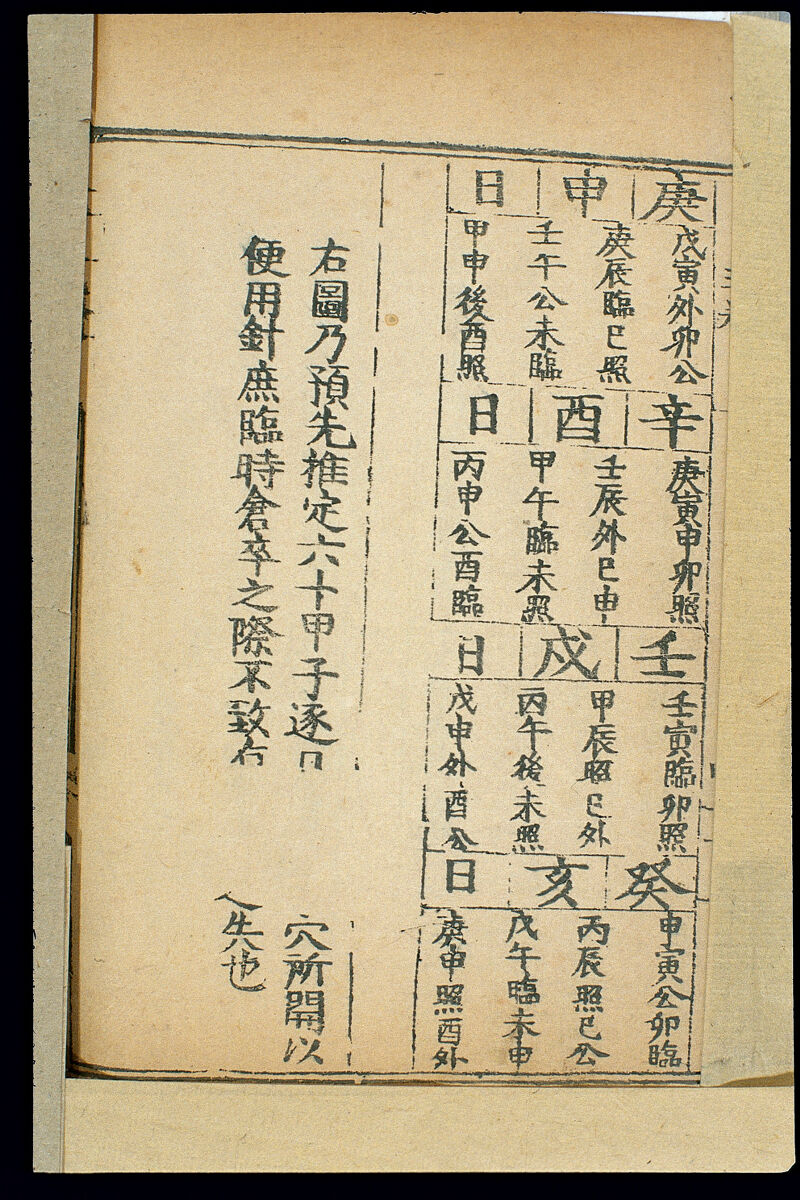 庚申日
戊寅外卯公
庚辰臨巳照
壬午公未臨
甲申後酉照
辛酉日
庚寅申卯照
壬辰外巳申
甲午臨未照
丙申公酉臨
壬戌日
壬寅臨卯照
甲辰照巳外
丙午後未照
戊申外酉公
癸亥日
甲寅公卯臨
丙辰照巳公
戊午臨未申
庚申照酉外
右圖乃預先推定六十甲子逐日穴所開以
便用針庶臨時倉卒之際不致有失也